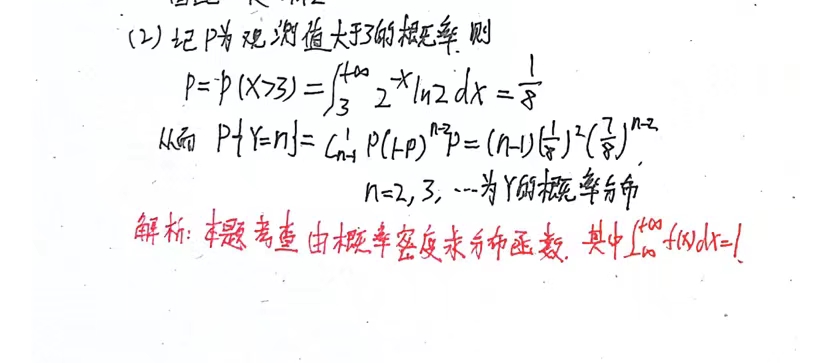 (2) 记 P为 观测值大于3的概率, 则
P=P(X>3)=∫₃^{+∞} 2^{-x}ln2dx=1/8
从而 P{Y=n}=C_{n-1}^{1}P(1-P)^{n-2}P=(n-1)(1/8)^2(7/8)^{n-2},
n=2,3,…为Y的概率分布
解析: 本题考查由概率密度求分布函数. 其中∫_{-∞}^{+∞}f(x)dx=1.